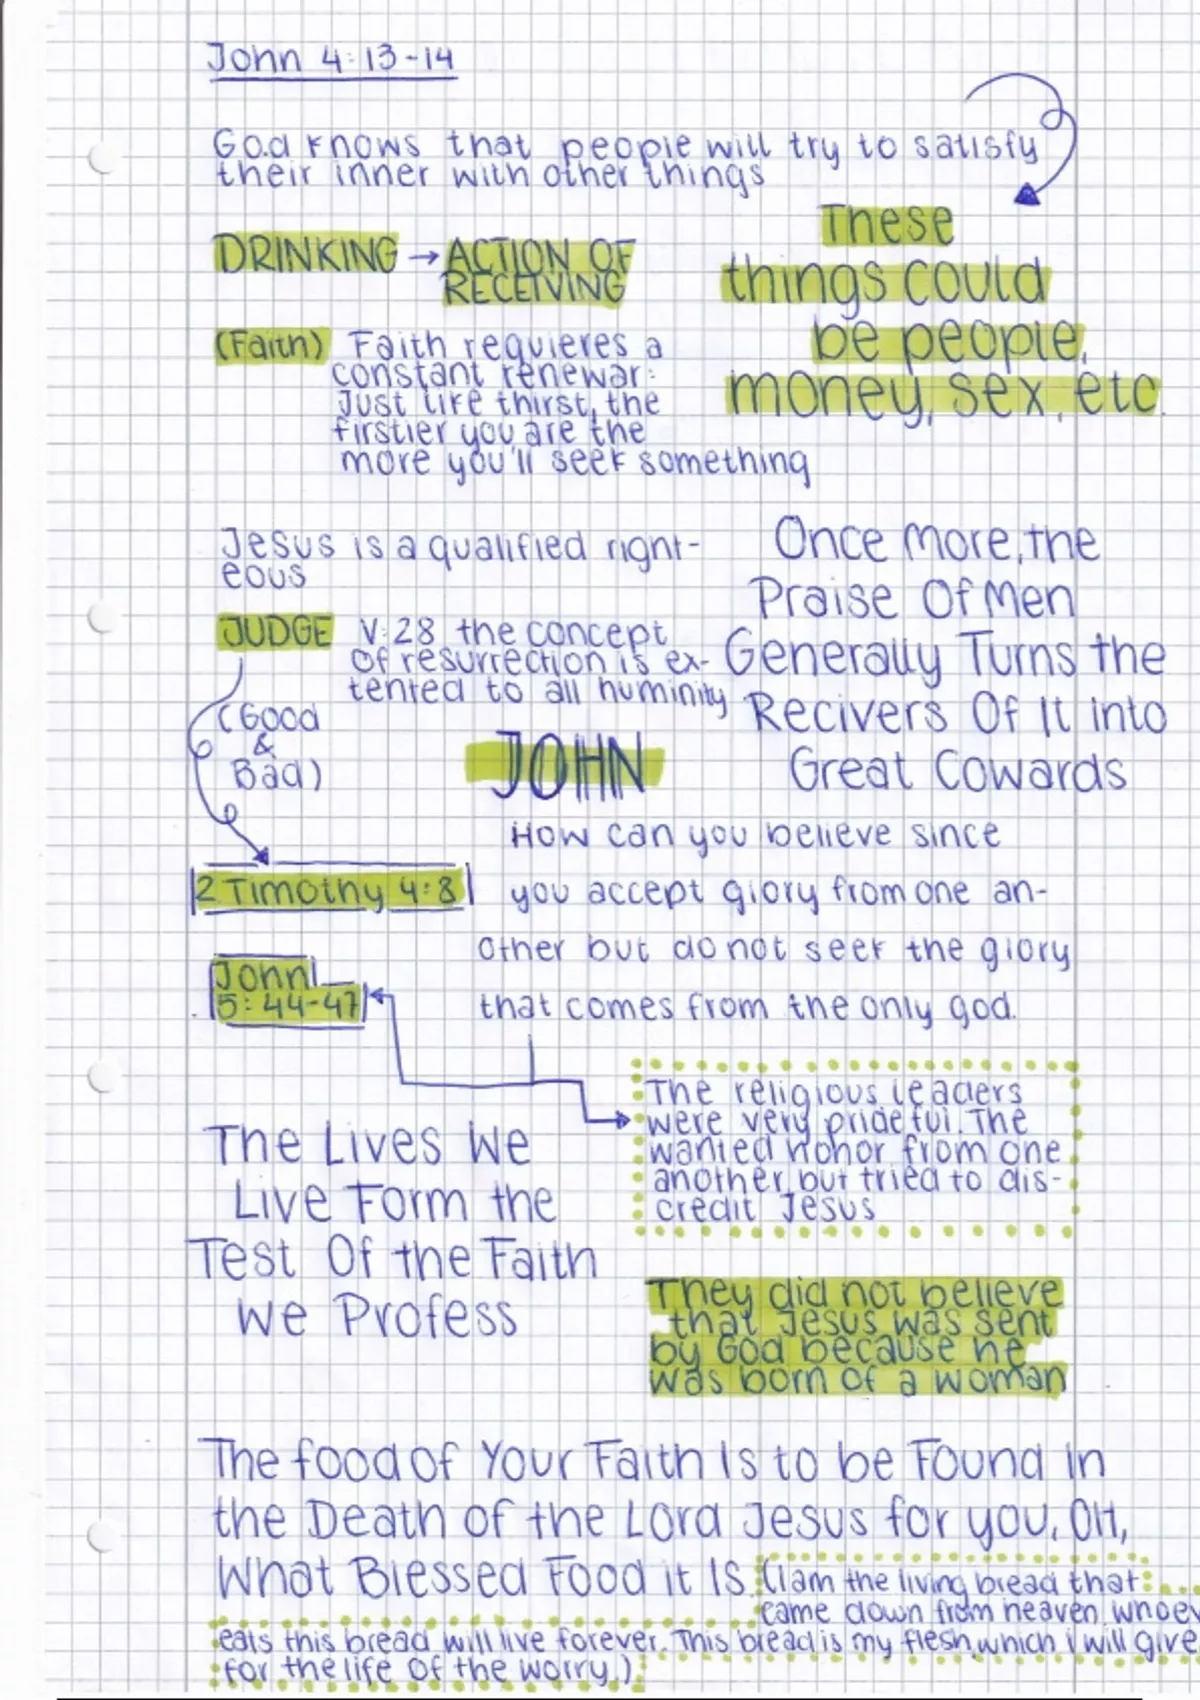 John 4:13-14
God knows that people will try to satisfy
their inner with other things
These
things could
be people,
money, sex, etc.
DRINKING → ACTION OF
RECEIVING
(Faith) Faith requieres a
constant renewar:
Just like thirst, the
firstier you are the
more you'll seek something
Jesus is a qualified right-
eous
JUDGE V:28 the concept
of resurrection is ex-
tented to all huminity
(Good
&
Bad)
Once More, the
Praise Of Men
Generally Turns the
Recivers Of It into
Great Cowards
JOHN
How can you believe since
you accept glory from one an-
other but do not seek the glory
that comes from the only god.
2 Timothy 4:8
John
5:44-47
The religious leaders
were very prideful. The
wanted honor from one
another, but tried to dis-
credit Jesus
The Lives We
Live Form the
Test Of the Faith
We Profess
They did not believe
that Jesus was sent
by God because he
was born of a woman
The food of Your Faith Is to be Found in
the Death of the Lord Jesus for you. OH,
What Blessed Food it Is. (I am the living bread that
came down from heaven, whoev
eats this bread will live forever. This bread is my flesh, which i will give
for the life of the worry.)